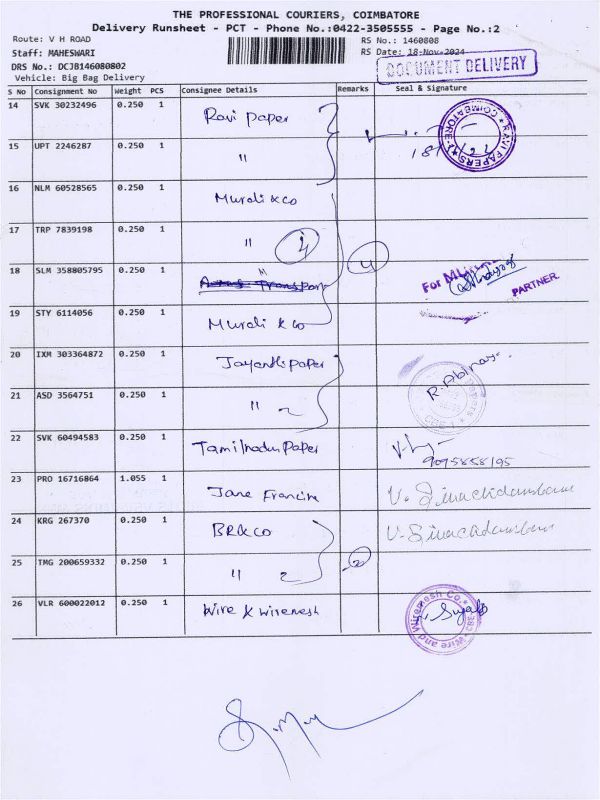 THE PROFESSIONAL COURIERS, COIMBATORE
Delivery Runsheet - PCT - Phone No.:0422-3505555 - Page No.:2
Route: V H ROAD
RS No.: 1460808
Staff: MAHESWARI
RS Date: 18-Nov-2024
DRS No.: DCJB146080802
DOCUMENT DELIVERY
Vehicle: Big Bag Delivery
S No Consignment No Weight PCS Consignee Details Remarks Seal & Signature
14 SVK 30232496 0.250 1 Ravi Paper
RAVI PAPERS COIMBATORE
15 UPT 2246287 0.250 1 "
16 NLM 60528565 0.250 1 Murali & co
17 TRP 7839198 0.250 1 " 4
4
18 SLM 358805795 0.250 1 "
For
PARTNER
19 STY 6114056 0.250 1 Murali & co
20 IXM 303364872 0.250 1 Jayanthi paper
R. Abinaya
21 ASD 3564751 0.250 1 " 2
22 SVK 60494583 0.250 1 Tamilnadu Paper
9095858195
23 PRO 16716864 1.055 1 Jane Francin
24 KRG 267370 0.250 1 BR&CO
25 TMG 200659332 0.250 1 " 2
2
26 VLR 600022012 0.250 1 Wire & Wiremesh
Wire and Wiremesh Co. CBE